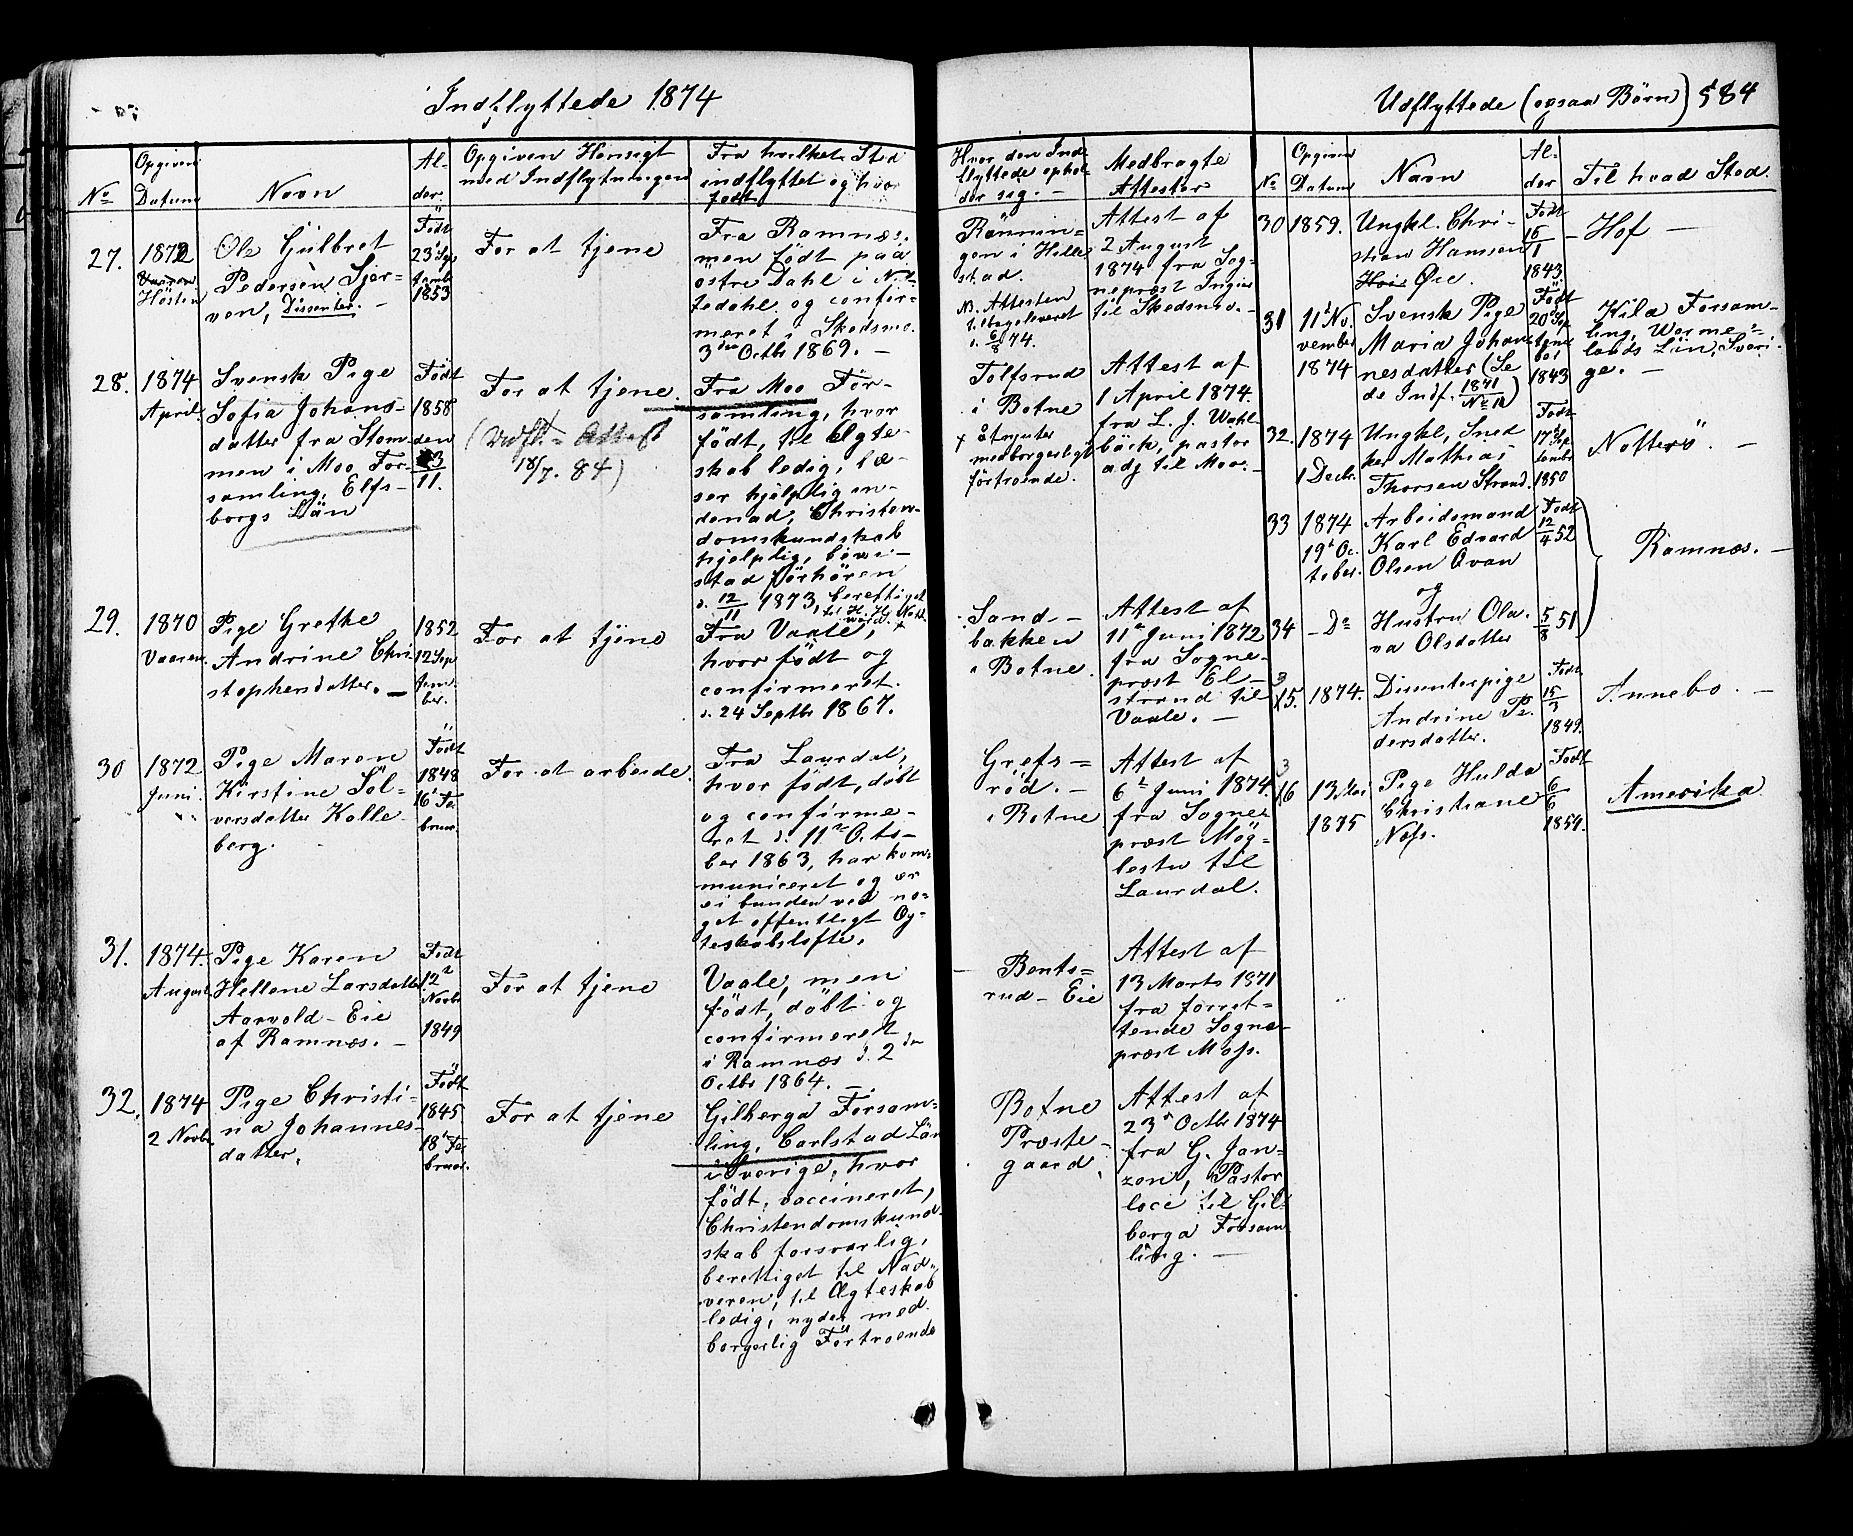 Indflyttede 1874
No
Opgiven
Datum
Navn
Al-
der.
Opgiven Hensigt
med Indflytningen
Fra hvilket Sted
indflyttet og hvor
født
Hvor den Ind
flyttede ophol-
der sig. -
Medbragte
Attester
27.
1872
Høsten
Ole Gulbret
Pedersen Sjer-
ven, Dissenter. -
Født
23 Sep
tember
1853
For at tjene
Fra Ramnæs,
men født paa
östre Dahl i Nit-
tedahl og confir-
meret i Skedsmo.
3die Octbr 1869. -
Rønnin-
gen i Hille
stad.
NB. Attesten
tilbageleveret
d. 6/8 74.
Attest af
2 August
1874 fra Sog-
nepræst Ingier
til Skedsmo. -
28.
1874
April.
Svensk Pige
Sofia Johans-
datter fra Stom-
men i Moo For-
samling, Elfs-
borgs Län
Født
1858
den
23
11.
For at tjene.
(Udfl.= Attest
18/7. 84)
Fra Moo För-
samling, hvor
født, til Ægte-
skab ledig, læ-
ser hjelplig in-
denad, Christen-
domskundskab
hjelplig, bevi-
stad förhören
d. 12/11 1873, berettiget
til H. H. Natt-
ward. x
Tolfsrud
i Botne
x åtnjuter
medborgerligt
förtroende.
Attest af
1 April 1874.
fra L. J. Wahl-
bäck, pastor
adj til Moo. -
29.
1870
Vaaren.
Pige Grethe
Andrine Chri
stophersdatter. -
1852
12 Sep
tem-
ber.
For at tjene
Fra Vaale,
hvor født og
confirmeret.
d. 24 Septbr 1867.
Sand-
bakken
i Botne.
Attest af
11te Juni 1872
fra Sogne-
præst El-
strand til
Vaale. -
30
1872
Juni.
Pige Maren
Kirstine Söl-
versdatter Kolle
berg.
Født
1848
16 Fe
bruar.
For at arbeide.
Fra Laurdal,
hvor født, døbt
og confirme-
ret d. 11te Octo-
ber 1863, har kom-
municeret og er
ei bunden ved no-
get offentligt Æg-
teskabsløfte.
Grefs=
rød. -
i Botne
Attest af
6te Juni 1874.
fra Sogne-
præst Møg-
lestu til
Laurdal.
31.
1874.
August
Pige Karen
Hellene Larsdatter
Aarvold-Eie
af Ramnæs. -
Født
12te
Novbr
1849
For at tjene
Vaale, men
født, døbt og
confirmeret
i Ramnæs d. 2den
Octbr 1864. -
Bents=
rud-Eie
Attest af
13 Marts 1871
fra forret-
tende Sogne-
præst Moss.
32.
1874
2 Novbr
Pige Christi-
na Johannes-
datter.
Født
1845
18 Fe
bruar.
For at tjene
Gilberga Försam-
ling, Carlstad Län
i Sverige, hvor
født, vaccineret,
Christendomskund-
skab forsvarlig,
berettiget til Nad-
veren, til Ægteskab
ledig, nyder med
borgerlig Förtroende
Botne
Præste-
gaard.
Attest af
23de Octbr 1874
fra G. Jan-
zon, Pastor
loci til Gil-
berga Försam
ling. -
Udflyttede (ogsaa Børn) 584
No
Opgiven
Datum
Navn
Al-
der
Til hvad Sted.
30
1859.
Ungkl. Chri-
stian Hansen
Øre.
Født
15
1
1843
- Hof -
31
11te No-
vember
1874
Svensk Pige
Maria Johan-
nesdatter (Se
de Indf. 1871
No 12)
Født
20de Sep
tem
ber
1843
Kila Forsam-
ling, Werme-
lands Län, Sveri-
ge. -
32.
1874
1 Decbr.
Ungkl, Sned
ker Mathias
Thorsen Strand.
Født
17de Sep
tember
1850
Nøtterö. -
33
1874
19de Oc-
tober.
Arbeidsmand
Karl Edvard
Olsen Qvan
og
Født
12/4 52
Ramnæs. -
34
- Do
Hustru Ola-
va Olsdatter
5/8 51
35.
1874.
Dissenterpige
Andrine Pe-
dersdatter.
Født
15
3
1849.
Annebo. -
36
13 Mai
1875
Pige Hulda
Christiane
Næss.
Født
6
6
1859.
Amerika